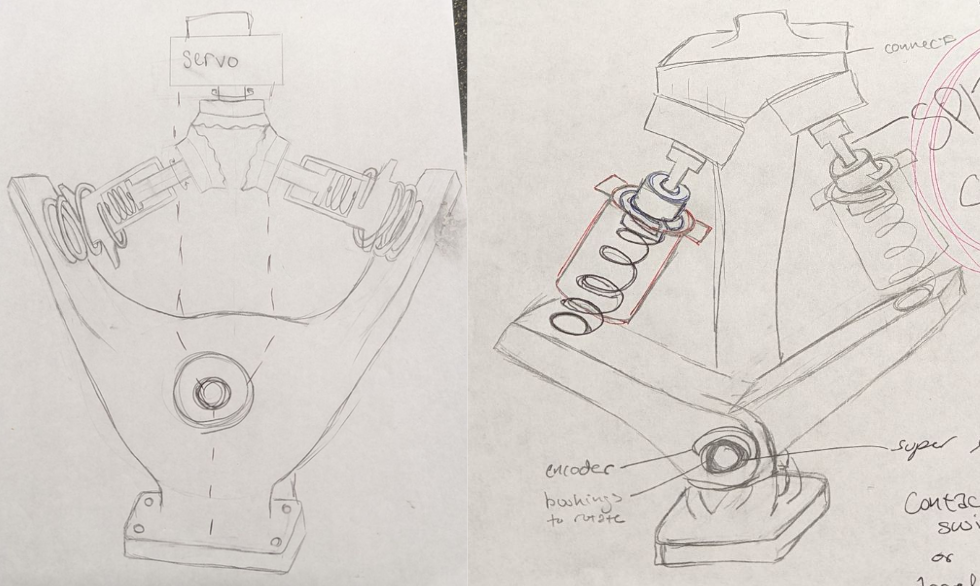 servo
connects
encoder
bushings
to rotate
super
Contac
swi
or